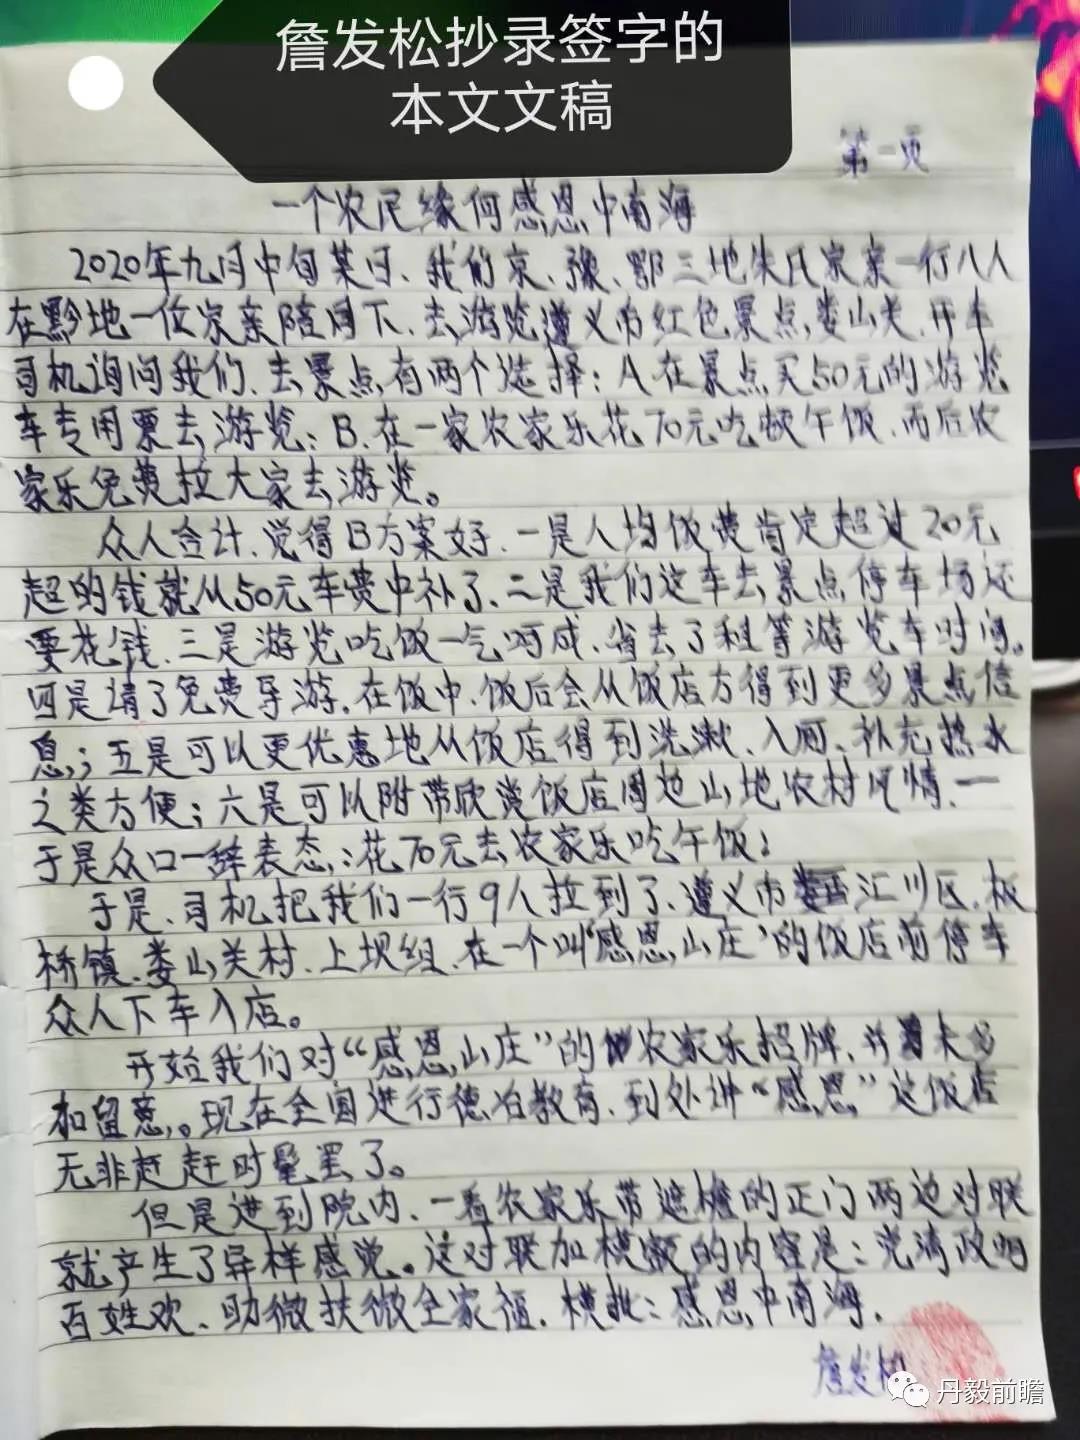 詹发松抄录签字的
本文文稿
第一页
一个农民缘何感恩中南海
2020年九月中旬某日、我们京、豫、鄂三地朱氏家亲一行八人
在黔地一位宗亲陪同下、去游览遵义市红色景点娄山关、开车
司机询问我们、去景点有两个选择：A在景点买50元的游览
车专用票去游览；B、在一家农家乐花70元吃顿午饭、而后农
家乐免费拉大家去游览。
众人合计、觉得B方案好、一是人均饭费肯定超过20元
超的钱就从50元车费中补了、二是我们这车去景点停车场还
要花钱、三是游览吃饭一气呵成、省去了租等游览车时间。
四是请了免费导游、在饭中、饭后会从饭店方得到更多景点信
息；五是可以更优惠地从饭店得到洗漱、入厕、补充热水
之类方便；六是可以附带欣赏饭店周边山地农村风情、一
于是众口一辞表态：花70元去农家乐吃午饭；
于是、司机把我们一行9人拉到了、遵义市汇川区、板
桥镇、娄山关村、上坝组、在一个叫“感恩山庄”的饭店前停车
众人下车入店。
开始我们对“感恩山庄”的农家乐招牌、并未多
加留意。现在全国进行德治教育、到处讲“感恩”这饭店
无非赶赶时髦罢了。
但是进到院内、一看农家乐带遮檐的正门两边对联
就产生了异样感觉。这对联加横额的内容是：党清政明
百姓欢、助微扶微全家福、横批：感恩中南海、
詹发松
丹毅前瞻